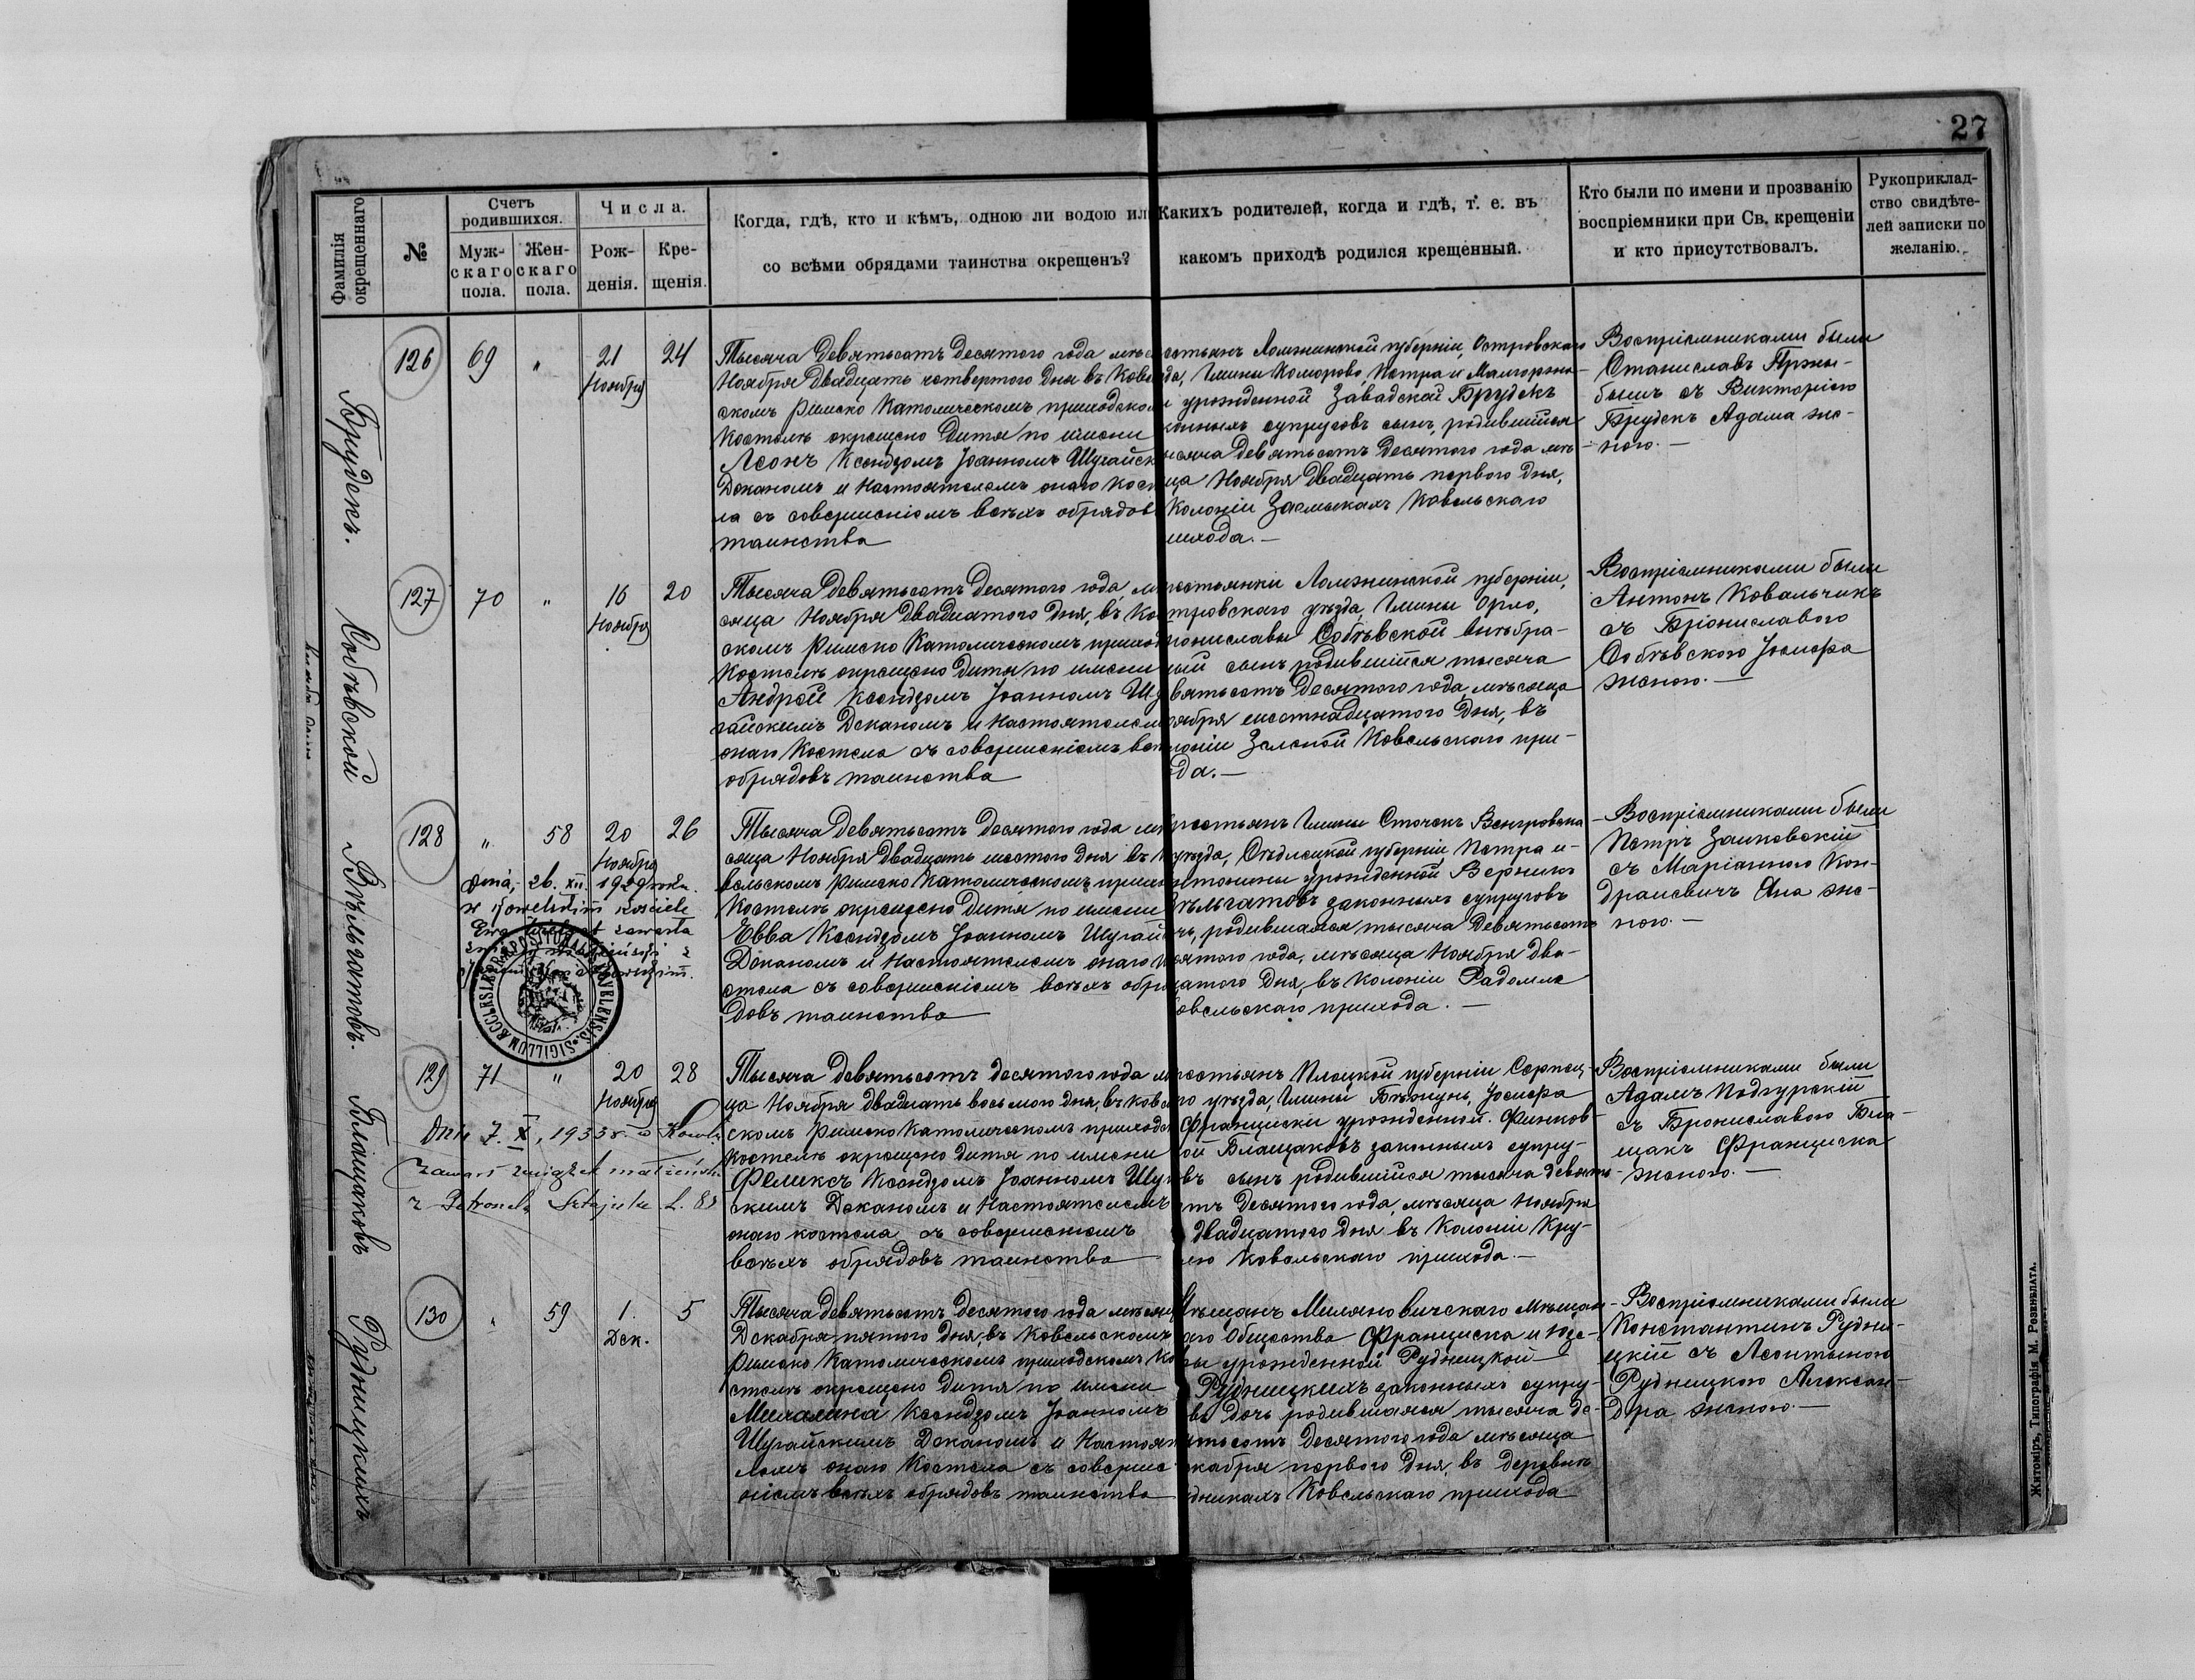 27
Фамилія окрещеннаго
№
Счетъ родившихся.
Мужскаго пола.
Женскаго пола.
Числа.
Рожденія.
Крещенія.
Когда, гдѣ, кто и кѣмъ, одною ли водою ил
со всѣми обрядами таинства окрещенъ?
Какихъ родителей, когда и гдѣ, т. е. въ
какомъ приходѣ родился крещенный.
Кто были по имени и прозванію
воспріемники при Св. крещеніи
и кто присутствовалъ.
Рукоприклад-
ство свидѣте-
лей записки по
желанію.
Брудекъ.
126
69
"
21
Ноября
24
Тысяча девятьсотъ десятого года мѣс
Ноября двадцать четвертого дня въ Ковел
скомъ Римско Католическомъ приходском
Костелѣ окрещено дитя по имени
Леонъ Ксендзомъ Іоанномъ Шугайск
Деканомъ и Настоятелемъ онаго Кост
ла съ совершеніемъ всѣхъ обрядов
таинства
стьянъ Ломжинской губерніи, Островскаго
да, Гмины Коморово, Петра и Малгоржа-
урожденной Завадской Брудекъ
конныхъ супруговъ сынъ, родившійся
ысяча девятьсотъ десятого года мѣ-
ца Ноября двадцать перваго дня,
Колоніи Засмыкахъ Ковельскаго
ихода.—
Воспріемниками были
Станиславъ Пржы-
бышъ съ Викторіею
Брудекъ Адама же-
ною.—
Собѣвской
127
70
"
16
Ноября
20
Тысяча девятьсотъ десятого года, м
сяца Ноября двадцатого дня, въ Ко
скомъ Римско Католическомъ приход
Костелѣ окрещено дитя по имени
Андрей Ксендзомъ Іоанномъ Шу
гайскимъ Деканомъ и Настоятелем
онаго Костела съ совершеніемъ всѣ
обрядовъ таинства
рестьянки Ломжинской губерніи,
тровскаго уѣзда, Гмины Орло,
рониславы Собѣвской внѣбра-
ный сынъ родившійся тысяча
вятьсотъ десятого года, мѣсяца
оября шестнадцатого дня, въ
лоніи Зеленой Ковельскаго при-
да.—
Воспріемниками были
Антонъ Ковальчикъ
съ Брониславою
Собѣвскою Іосифа
женою.—
Вѣльгатовъ.
128
"
58
20
Ноября
26
dnia, 26. XII. 1929 roku.
w Kowelskim kościele
Ewa Wielgat zawarła
Тысяча девятьсотъ десятого года мѣ
сяца Ноября двадцать шестого дня въ К
вельскомъ Римско Католическомъ прихо
Костелѣ окрещено дитя по имени
Евва Ксендзомъ Іоанномъ Шугай
Деканомъ и Настоятелемъ онаго К
стела съ совершеніемъ всѣхъ обря
довъ таинства
рестьянъ Гмины Сточекъ Венгровска
уѣзда, Сѣдлецкой губерніи Петра и
нтонины урожденной Верникъ
ѣльгатовъ законныхъ супруговъ
чь, родившаяся тысяча девятьсотъ
сятого года, мѣсяца Ноября два-
цатого дня, въ Колоніи Радомле
овельскаго прихода.—
Воспріемниками были
Петръ Заиковскій
съ Маріанною Кон-
драшевичъ Яна же-
ною.—
SIGILLUM ECCLESIAE PRAEPOSITURALIS KOVELENSIS
Блащаковъ
129
71
"
20
Ноября
28
Dnia 7. X. 1933 r. w Kowlu
zawarł związek małżeński
z Petronelą
L. 83
Тысяча девятьсотъ десятого года м
ца Ноября двадцать восьмого дня, въ Кове
скомъ Римско Католическомъ приходс
Костелѣ окрещено дитя по имени
Феликсъ Ксендзомъ Іоанномъ Шу
скимъ Деканомъ и Настоятелемъ
онаго костела съ совершеніемъ
всѣхъ обрядовъ таинства
рестьянъ Плоцкой губерніи Серпец-
го уѣзда, Гмины Бѣжунь, Іосифа
Францишки урожденной Финков-
ой Блащаковъ законныхъ супру-
въ сынъ родившійся тысяча девять-
отъ десятого года, мѣсяца Ноября
двадцатого дня въ Колоніи Кру-
ею Ковельскаго прихода.—
Воспріемниками были
Адамъ Подгурскій
съ Брониславою Бла-
щакъ Франциска
женою.—
Рудницкихъ
130
"
59
1.
Дек.
5
Тысяча девятьсотъ десятого года мѣсяц
Декабря пятого дня, въ Ковельскомъ
Римско Католическомъ приходскомъ Ко
стелѣ окрещено дитя по имени
Михалина Ксендзомъ Іоанномъ
Шугайскимъ Деканомъ и Настоят
лемъ онаго Костела съ соверше
ніемъ всѣхъ обрядовъ таинства
ѣщанъ Миляновичскаго Мѣщан-
аго Общества Франциска и Юзе-
фы урожденной Рудницкой
Рудницкихъ законныхъ супру-
въ дочь родившаяся тысяча де-
ятьсотъ десятого года мѣсяца
екабря перваго дня, въ деревнѣ
дникахъ Ковельскаго прихода
Воспріемниками были
Константинъ Рудни-
цкій съ Леонтыною
Рудницкою Алексан-
дра женою.—
Житоміръ, Типографія М. Розенблата.